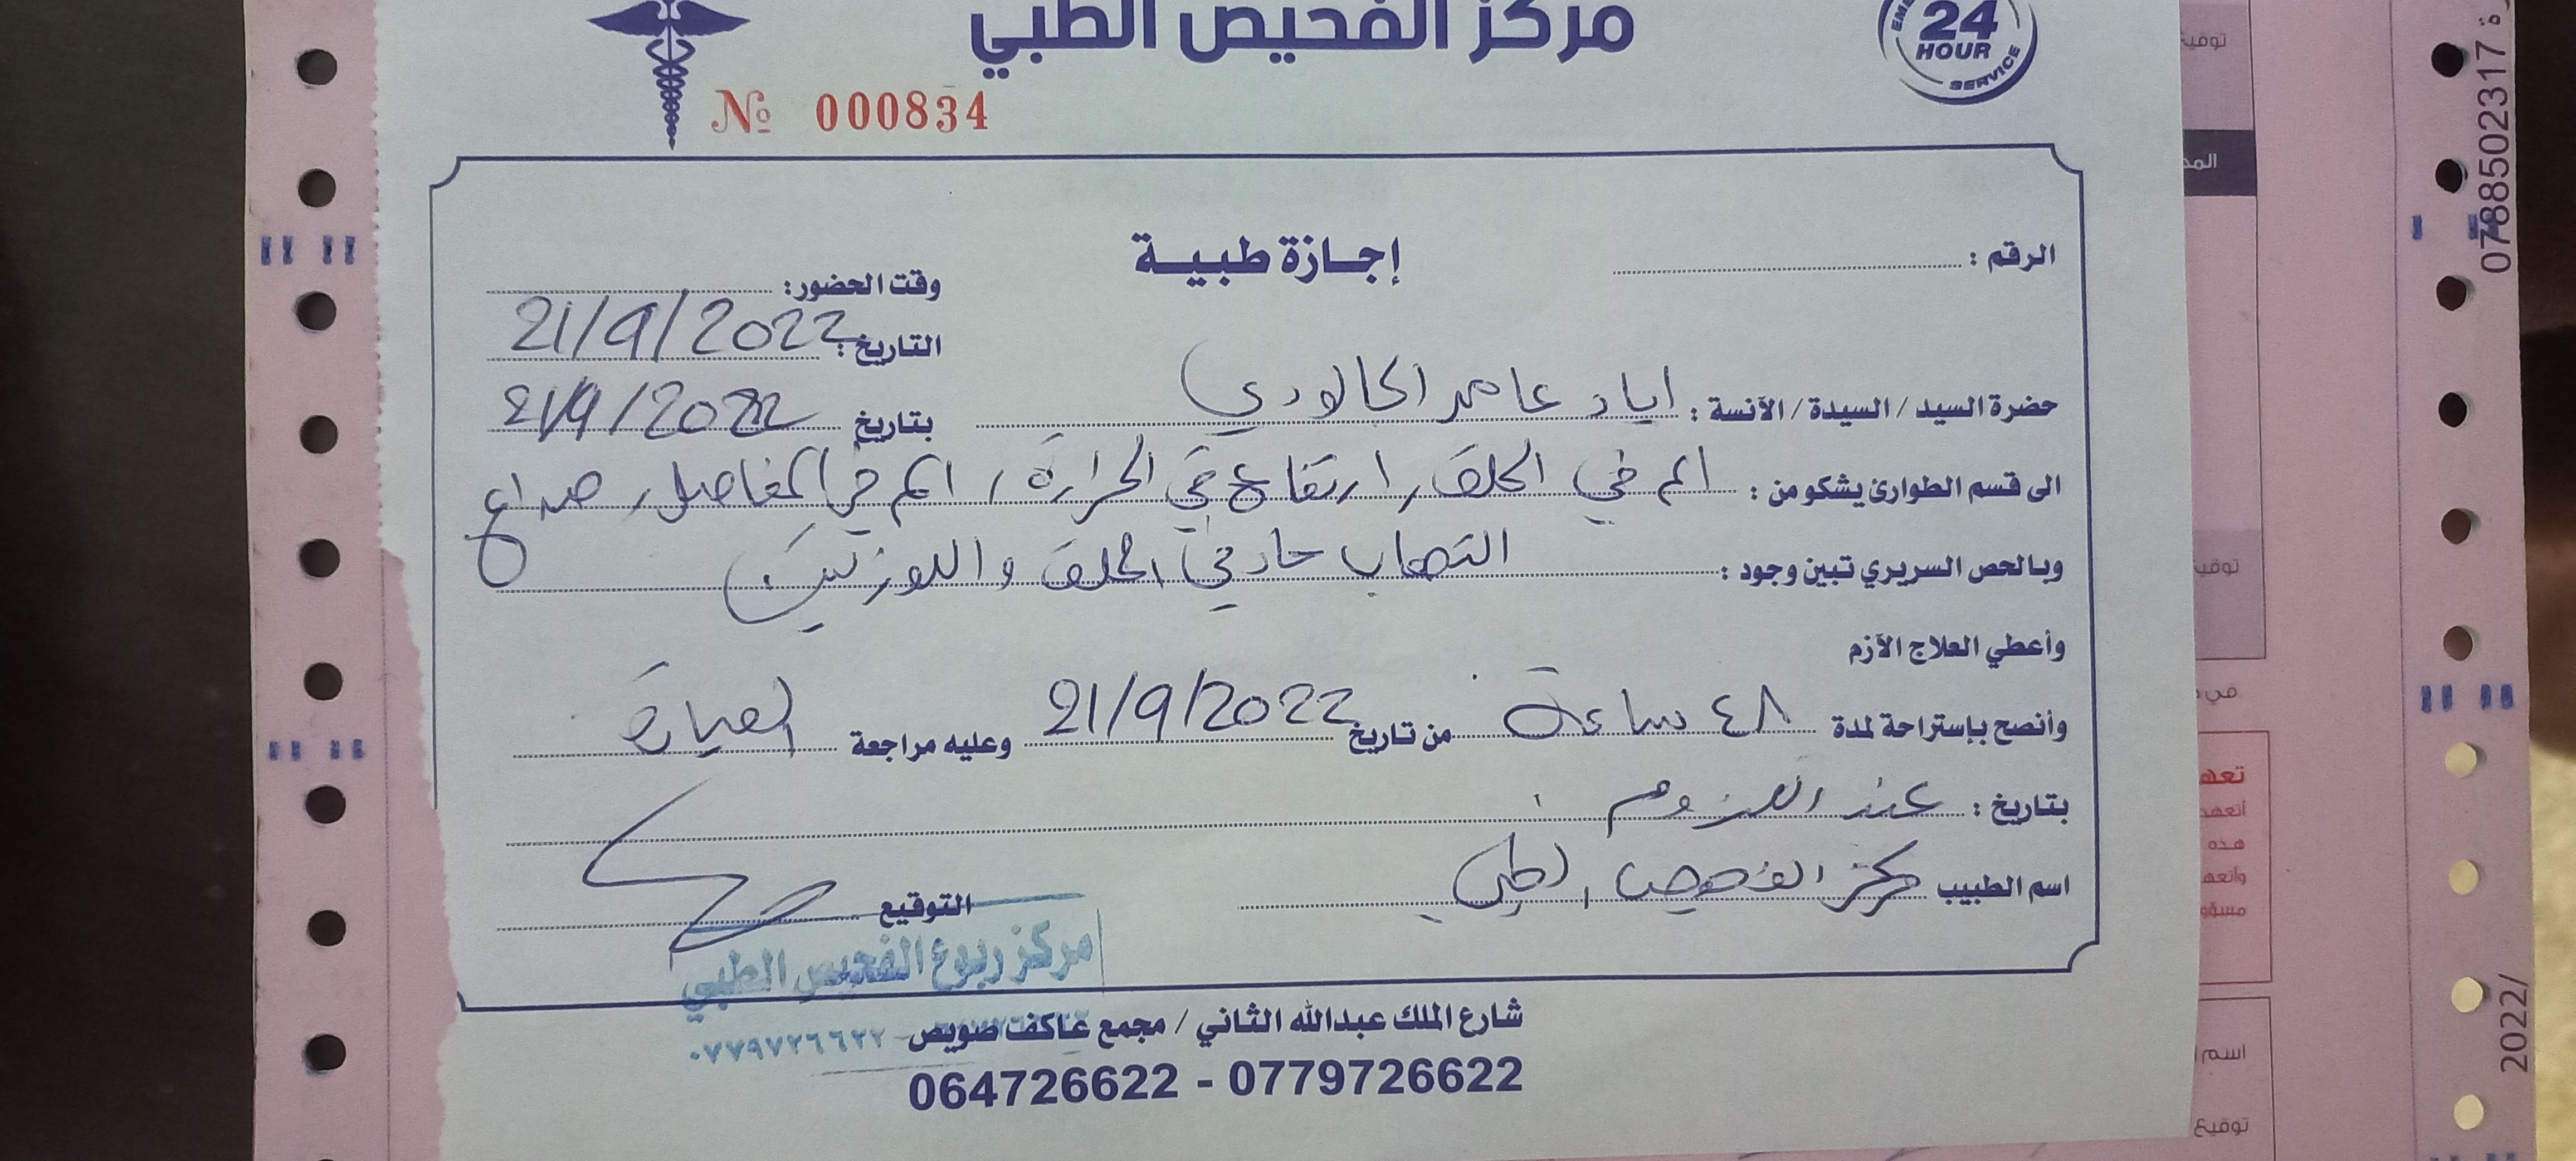 مركز الفحيص الطبي
24
HOUR
SERVICE
№ 000834
إجازة طبية
الرقم :
وقت الحضور:
التاريخ : 21/9/2022
حضرة السيد / السيدة / الآنسة : اياد عامر بتاريخ 21/9/2022
الى قسم الطوارئ يشكو من : الم في الحلق، ارتفاع في الحرارة، الم في المفاصل، صداع
وبالحص السريري تبين وجود : التهاب حاد في الحلق واللوزتين
وأعطي العلاج الآزم
وأنصح بإستراحة لمدة ٤٨ ساعة من تاريخ 21/9/2022 وعليه مراجعة العيادة
بتاريخ : عند اللزوم
اسم الطبيب مركز الفحيص الطبي
التوقيع
مركز ربوع الفحيص الطبي
٠٧٧٩٧٢٦٦٢٢
شارع الملك عبدالله الثاني / مجمع عاكف صويص
064726622 - 0779726622
توقيع
المد
توقيع
في
تعهد
أتعهد
هذه
وأتعهد
مسؤو
اسم
توقيع
0788502317
2022/